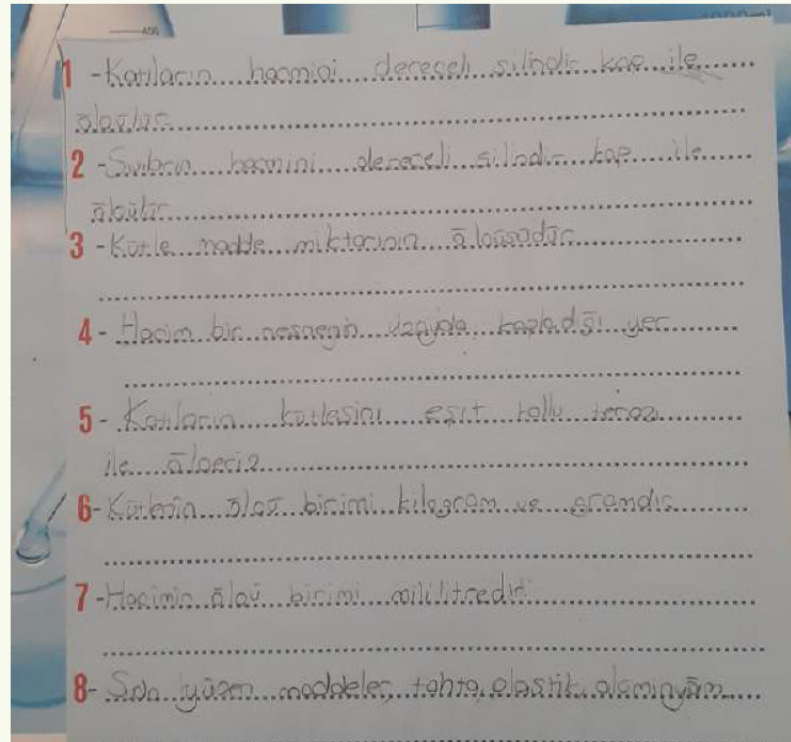 400
1000ml
1 - Katıların hacmini dereceli silindir kap ile
ölçülür.
2 - Sıvıların hacmini dereceli silindir kap ile
ölçülür.
3 - Kütle madde miktarının ölçüsüdür.
4 - Hacim bir nesnenin uzayda kapladığı yer
5 - Katıların kütlesini eşit kollu terazi
ile ölçeriz
6 - Kütlenin ölçü birimi kilogram ve gramdır.
7 - Hacimin ölçü birimi mililitredir.
8 - Suda yüzen maddeler, tahta, plastik, alüminyüm